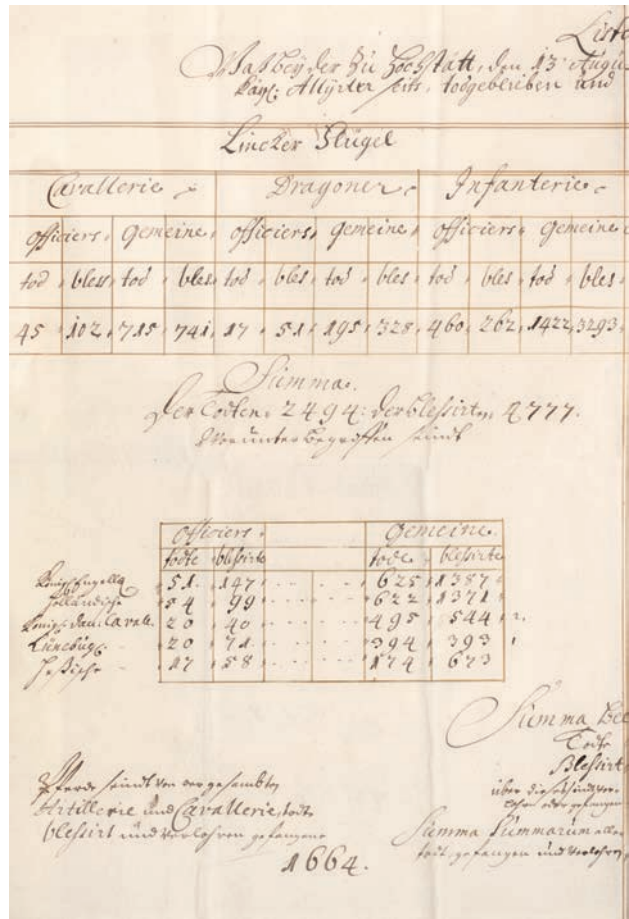 Liste
Waß bey der Zu Hochstätt, den 13 Augu
Kayl: Allyirter seits, todgeblieben und
Lincker Flügel
Cavallerie Dragoner Infanterie
officiers gemeine officiers gemeine officiers gemeine
tod bless tod bles tod bles tod bles tod bles tod bles
45 102 715 741 17 51 195 328 100 262 1422 3293
Summa
Der Todten 2494: der blessirten 4777.
Worunter begriffen seindt
Officiers Gemeine
todte blessirte todte blessirte
Königl: Engell 51 147 625 1387
Holländische 54 99 622 1371
Königl: Dän: Cavall. 20 40 495 544
Lünebüg: 20 71 394 393
Heßische 17 58 174 673
Summa
Todte
Blessirt
Pferde seindt von der gesambten
Artillerie und Cavallerie, todt
blessirt und verlohren gefangene
1664.
über die
gefangen
Summa Summarum aller
todt, gefangen und verlohren